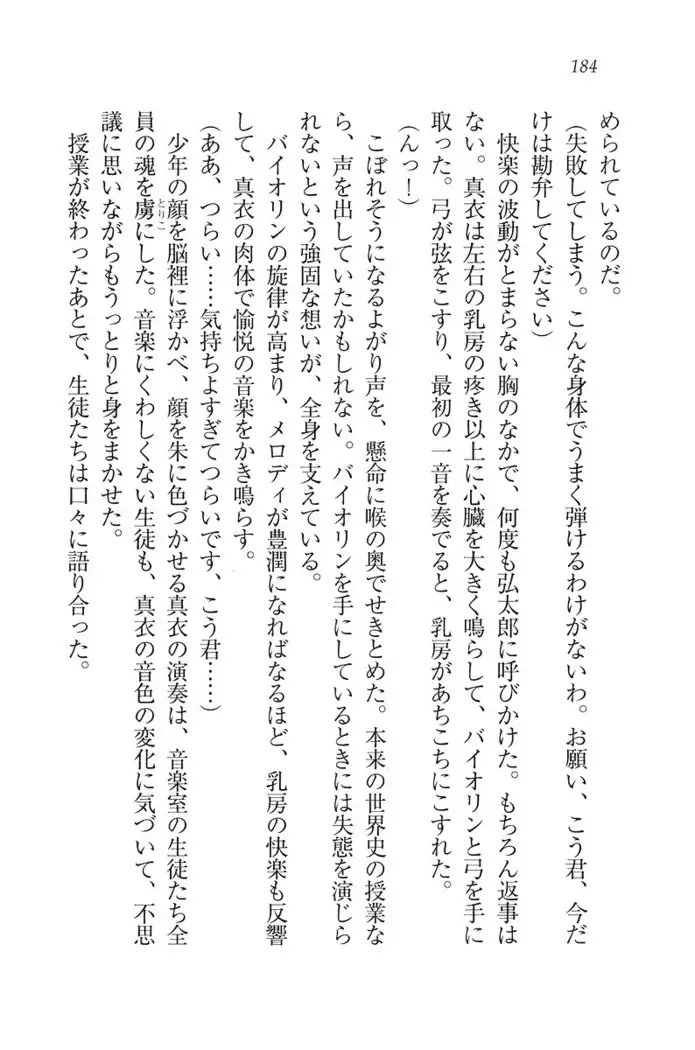 184
められているのだ。
（失敗してしまう。こんな身体でうまく弾けるわけがないわ。お願い、こう君、今だ
けは勘弁してください）
快楽の波動がとまらない胸のなかで、何度も弘太郎に呼びかけた。もちろん返事は
ない。真衣は左右の乳房の疼き以上に心臓を大きく鳴らして、バイオリンと弓を手に
取った。弓が弦をこすり、最初の一音を奏でると、乳房があちこちにこすれた。
（んっ！）
こぼれそうになるよがり声を、懸命に喉の奥でせきとめた。本来の世界史の授業な
ら、声を出していたかもしれない。バイオリンを手にしているときには失態を演じら
れないという強固な想いが、全身を支えている。
バイオリンの旋律が高まり、メロディが豊潤になればなるほど、乳房の快楽も反響
して、真衣の肉体で愉悦の音楽をかき鳴らす。
（ああ、つらい……気持ちよすぎてつらいです、こう君……）
少年の顔を脳裡に浮かべ、顔を朱に色づかせる真衣の演奏は、音楽室の生徒たち全
員の魂を虜とりこにした。音楽にくわしくない生徒も、真衣の音色の変化に気づいて、不思
議に思いながらもうっとりと身をまかせた。
授業が終わったあとで、生徒たちは口々に語り合った。